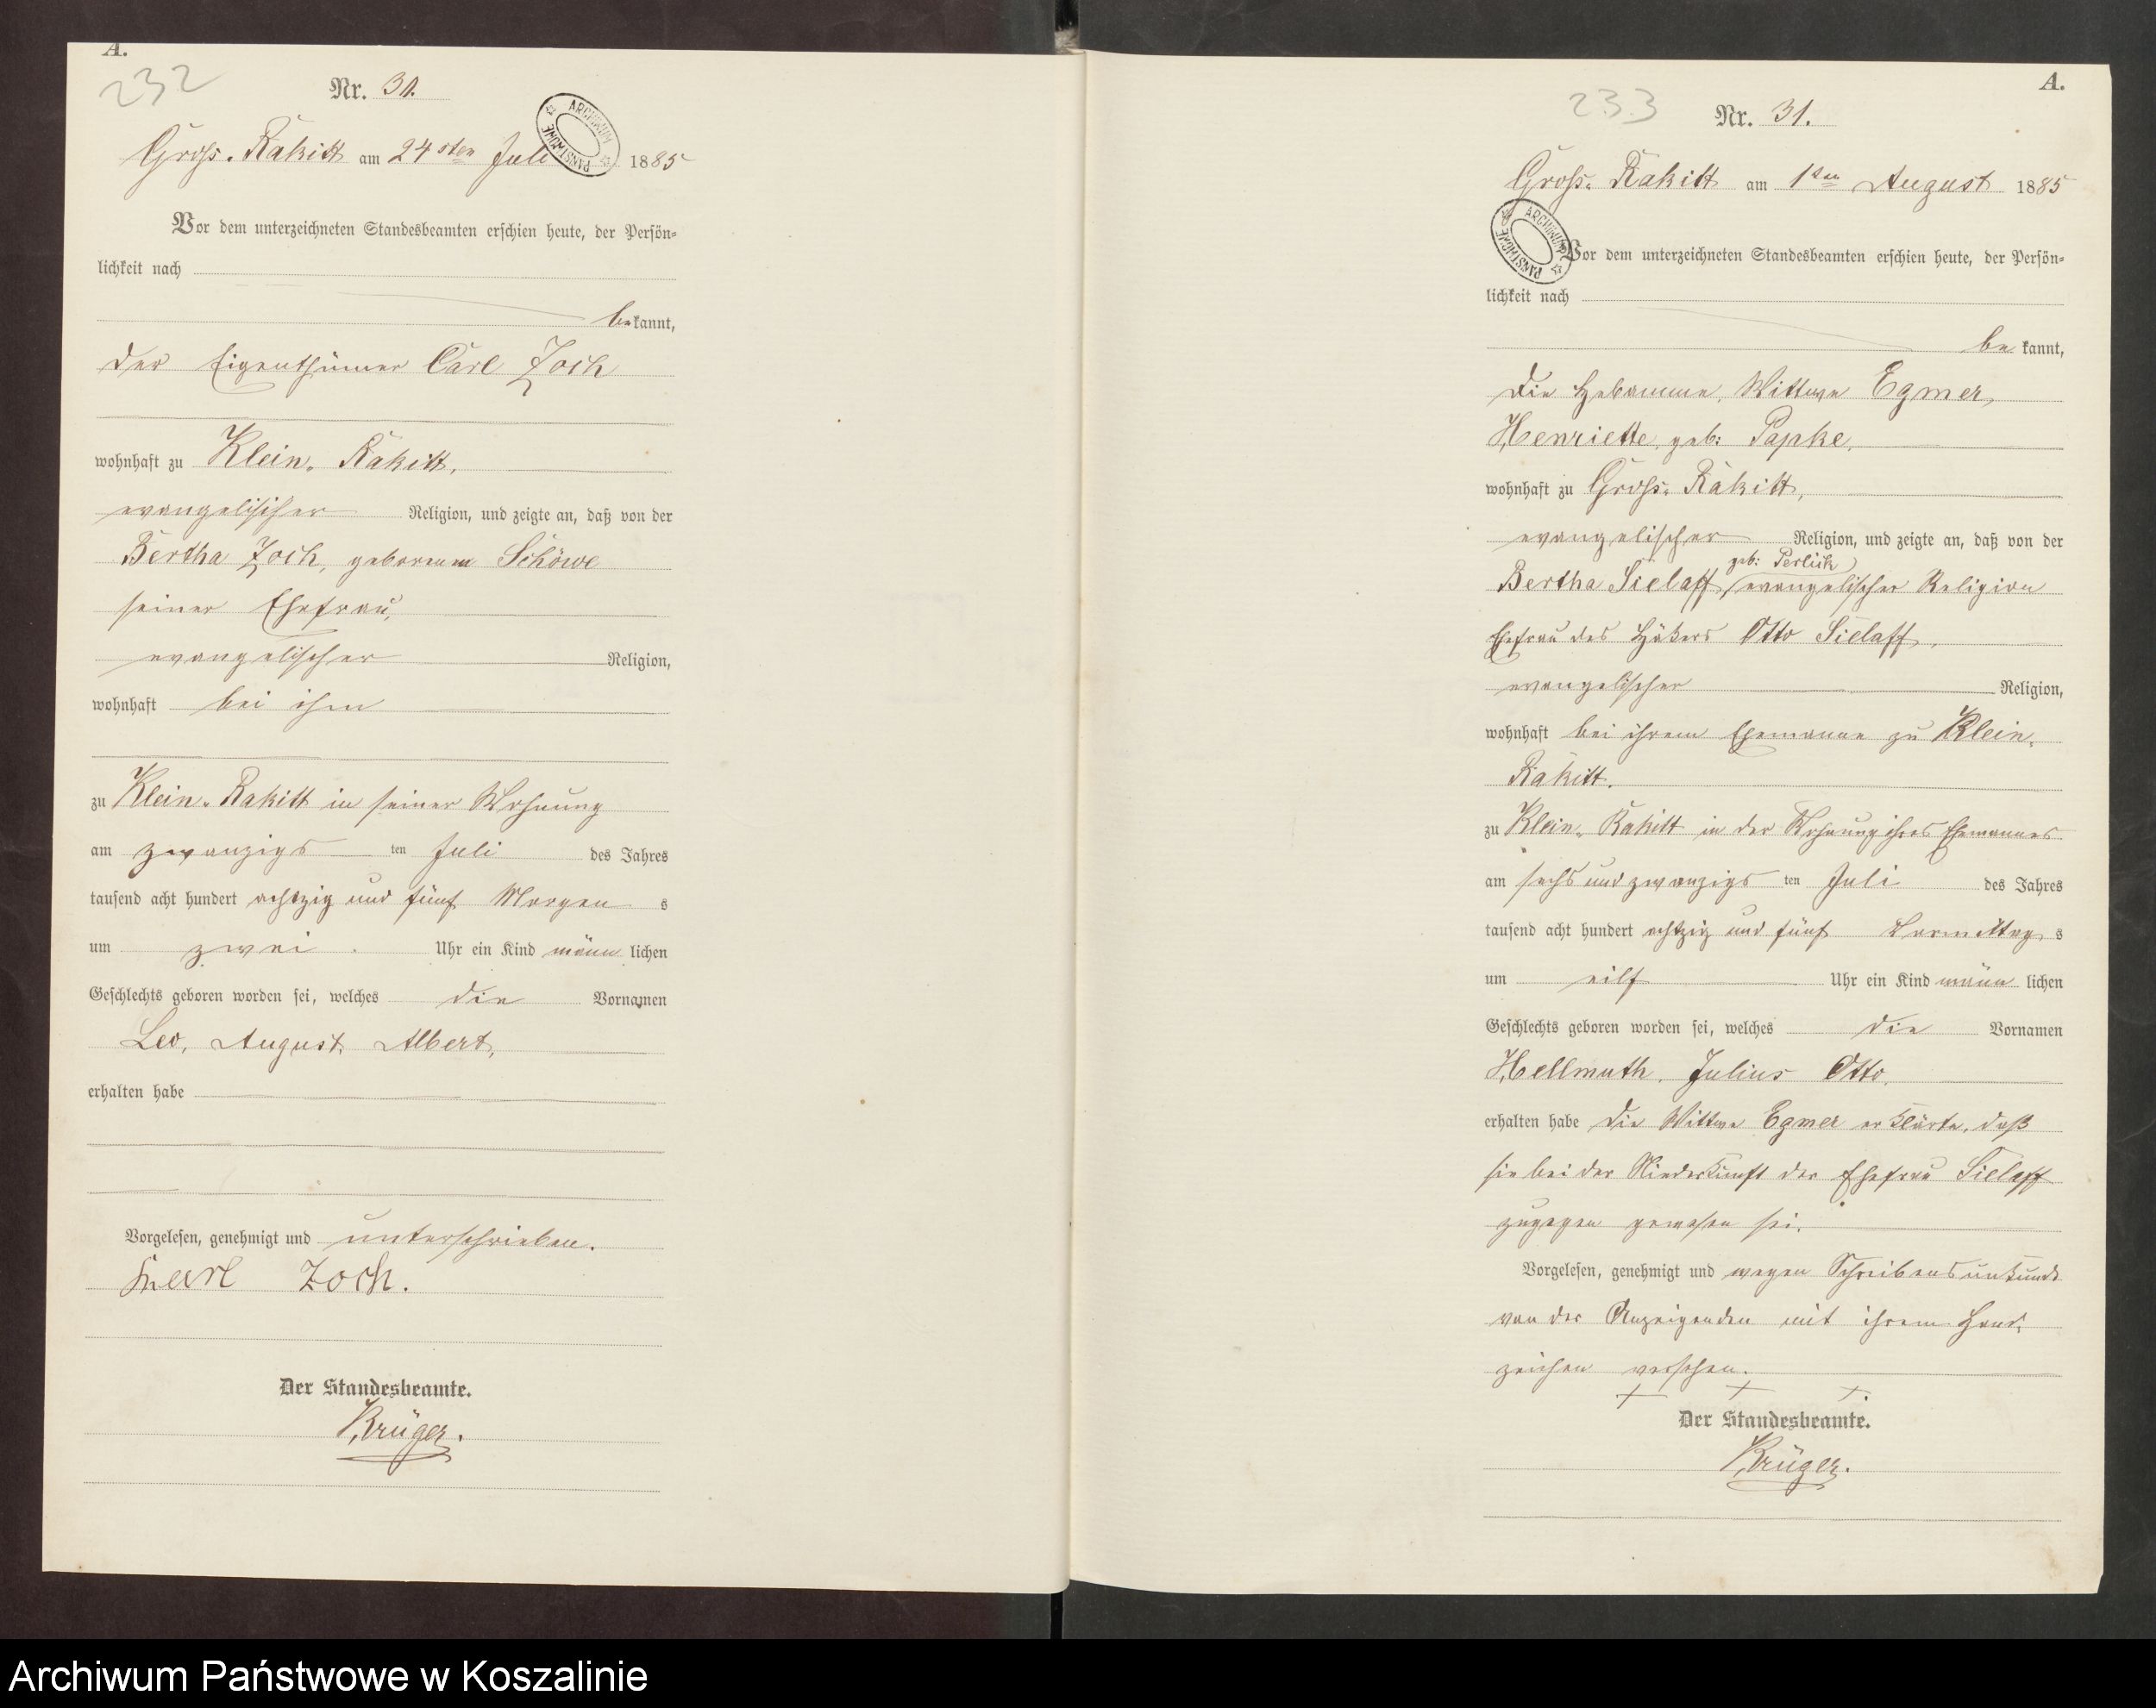 A.
232
Nr. 30.
Gross. Rakitt am 24sten Juli 1885
ARCHIWUM PAŃSTWOWE
Vor dem unterzeichneten Standesbeamten erschien heute, der Persön-
lichkeit nach
bekannt,
der Eigenthümer Carl Zoch
wohnhaft zu Klein. Rakitt,
evangelischer Religion, und zeigte an, daß von der
Bertha Zoch, geborenen Schöwe
seiner Ehefrau,
evangelischer Religion,
wohnhaft bei ihm
zu Klein. Rakitt in seiner Wohnung
am zwanzigs ten Juli des Jahres
tausend acht hundert achtzig und fünf Morgen s
um zwei Uhr ein Kind männ lichen
Geschlechts geboren worden sei, welches die Vornamen
Leo, August, Albert,
erhalten habe
Vorgelesen, genehmigt und unterschrieben.
Karl Zoch.
Der Standesbeamte.
Krüger.
A.
233
Nr. 31.
Gross. Rakitt am 1ten August 1885
ARCHIWUM PAŃSTWOWE
Vor dem unterzeichneten Standesbeamten erschien heute, der Persön-
lichkeit nach
be kannt,
die Hebamme, Wittwe Egmer,
Henriette, geb: Papke,
wohnhaft zu Gross. Rakitt,
evangelischer Religion, und zeigte an, daß von der
geb: Perlick
Bertha Sielaff, evangelischer Religion
Ehefrau des Hökers Otto Sielaff,
evangelischer Religion,
wohnhaft bei ihrem Ehemanne zu Klein.
Rakitt.
zu Klein. Rakitt in der Wohnung ihres Ehemannes
am sechs und zwanzigs ten Juli des Jahres
tausend acht hundert achtzig und fünf Vormittag s
um eilf Uhr ein Kind männ lichen
Geschlechts geboren worden sei, welches die Vornamen
Hellmuth, Julius Otto,
erhalten habe die Wittwe Egmer erklärte, daß
sie bei der Niederkunft der Ehefrau Sielaff
zugegen gewesen sei.
Vorgelesen, genehmigt und wegen Schreibensunkunde
von der Anzeigenden mit ihrem Hand,
zeichen versehen.
+ + +.
Der Standesbeamte.
Krüger.
Archiwum Państwowe w Koszalinie